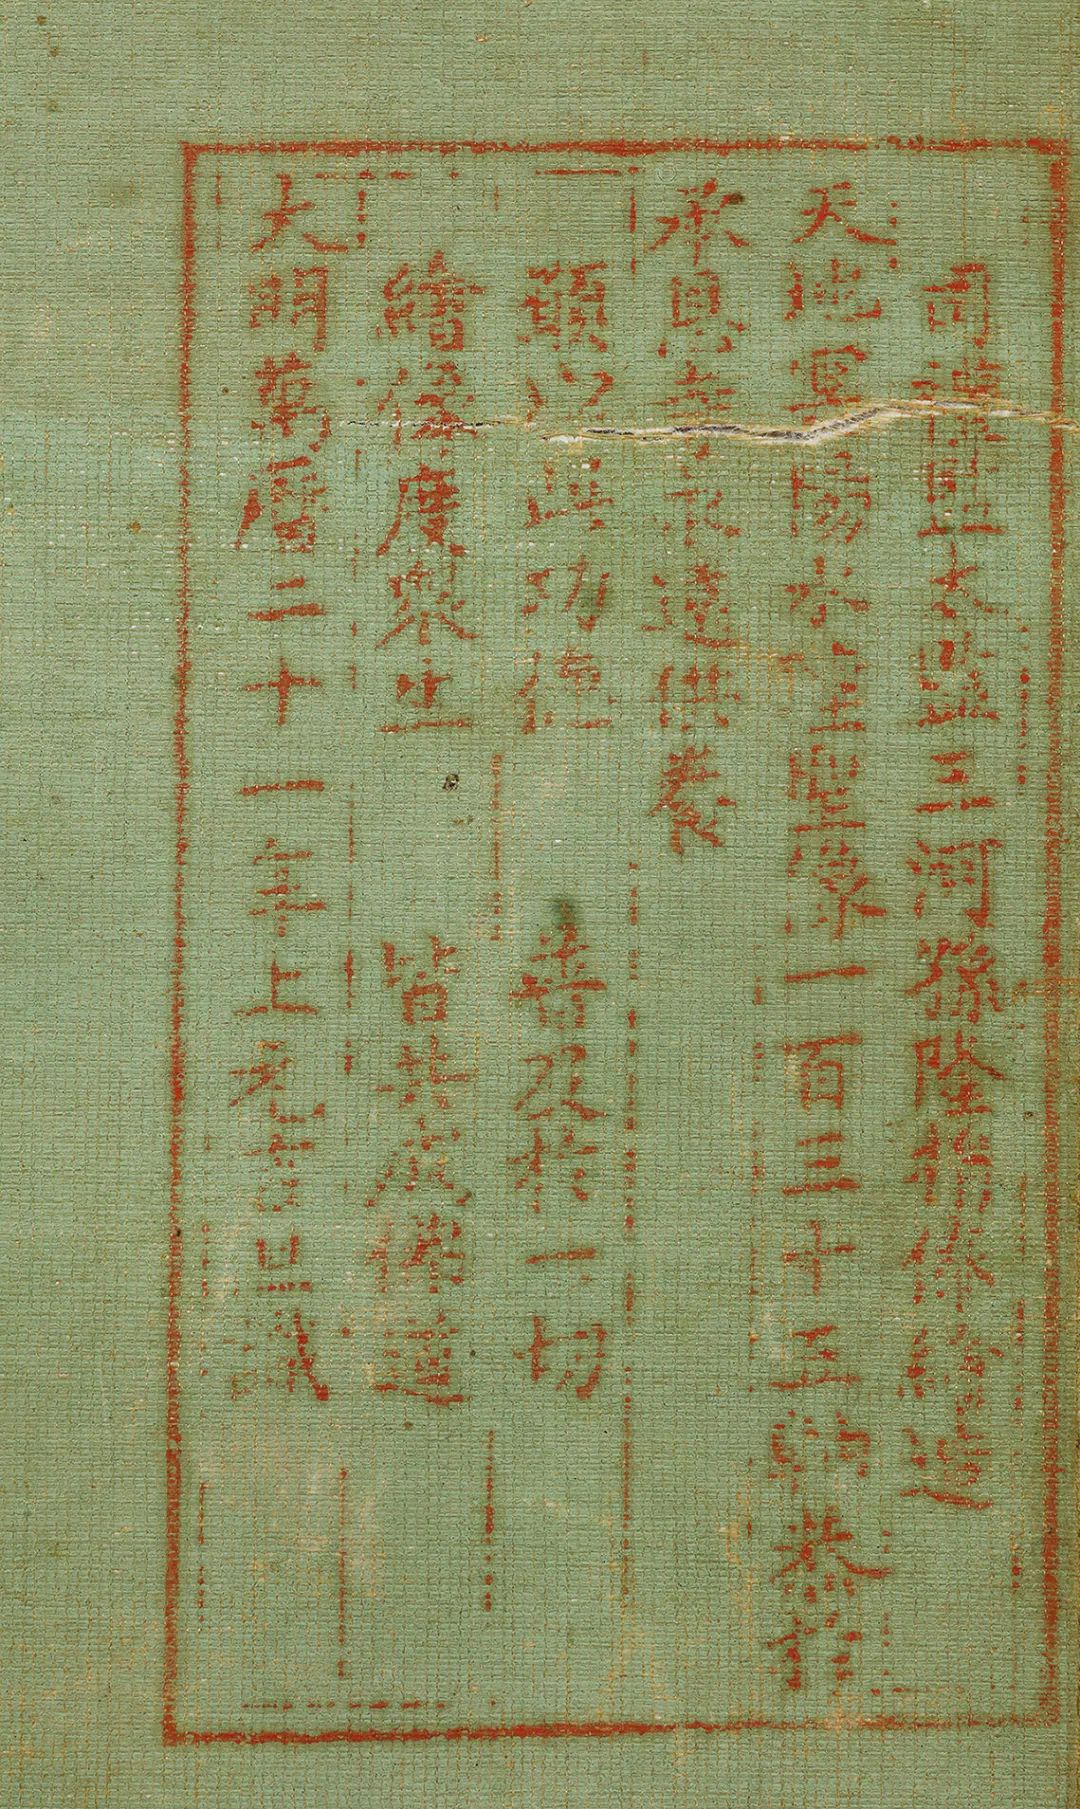 三河發造
天地冥陽水陸聖像一百三十五軸恭
承恩寺永遠供養
願以此功德 普及於一切
繪像度眾生 皆共成佛道
大明萬曆二十一年上元吉旦識